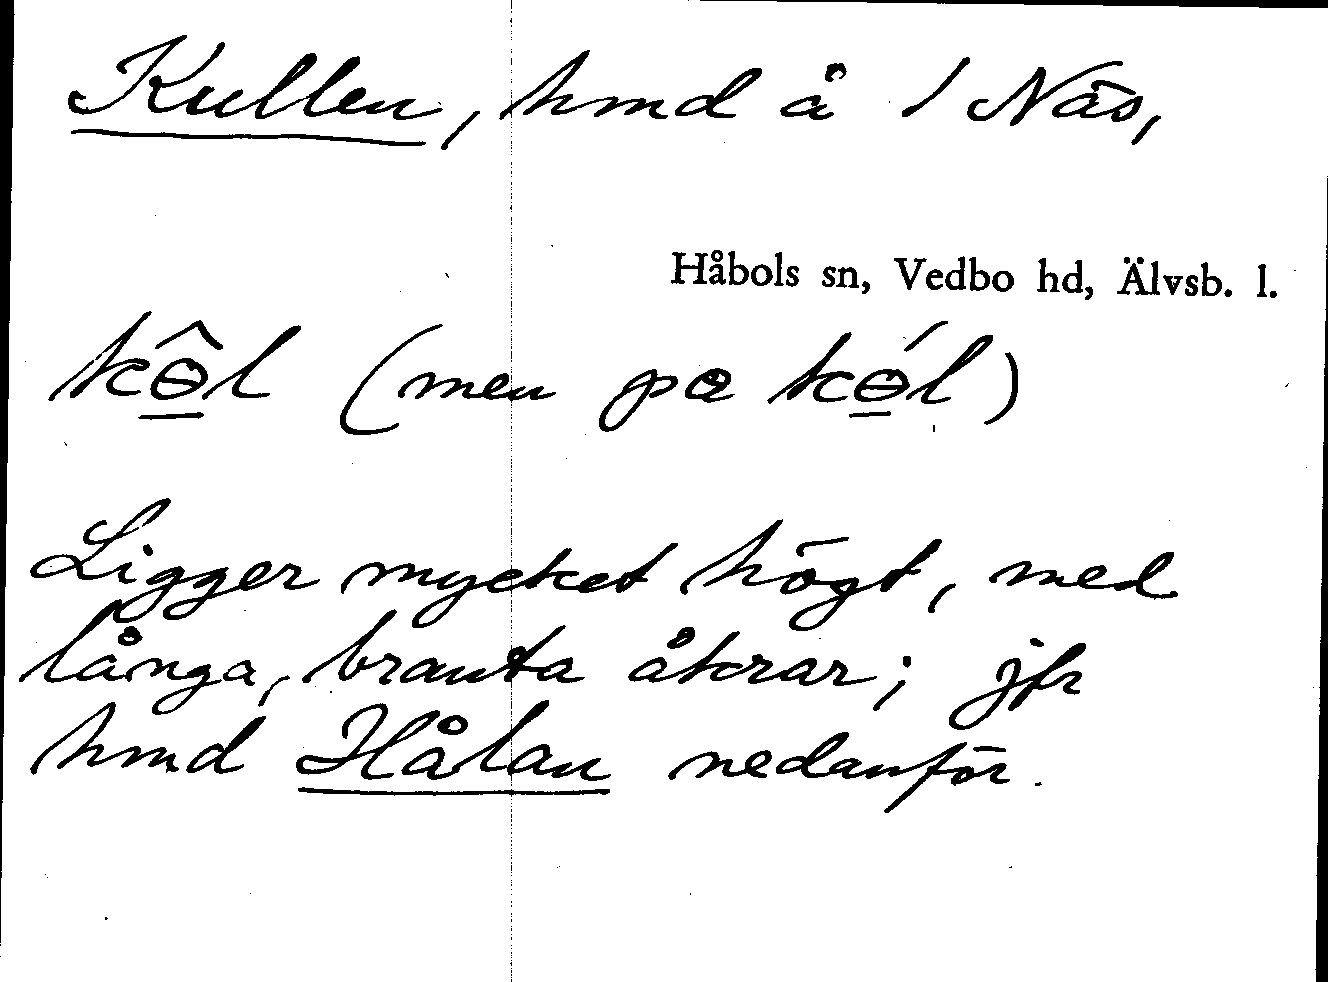 Kullen, hmd å 1 Näs,
Håbols sn, Vedbo hd, Älvsb. l.
kɵ̂l (men pɑ kɵ́l)
Ligger mycket högt, med
långa, branta åkrar; jfr
hmd Hålan nedanför.